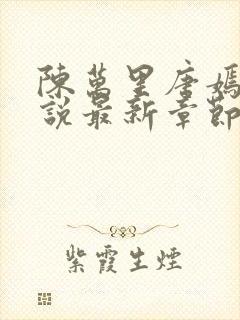 陳萬里唐嫣
說最新章節
紫霞生煙